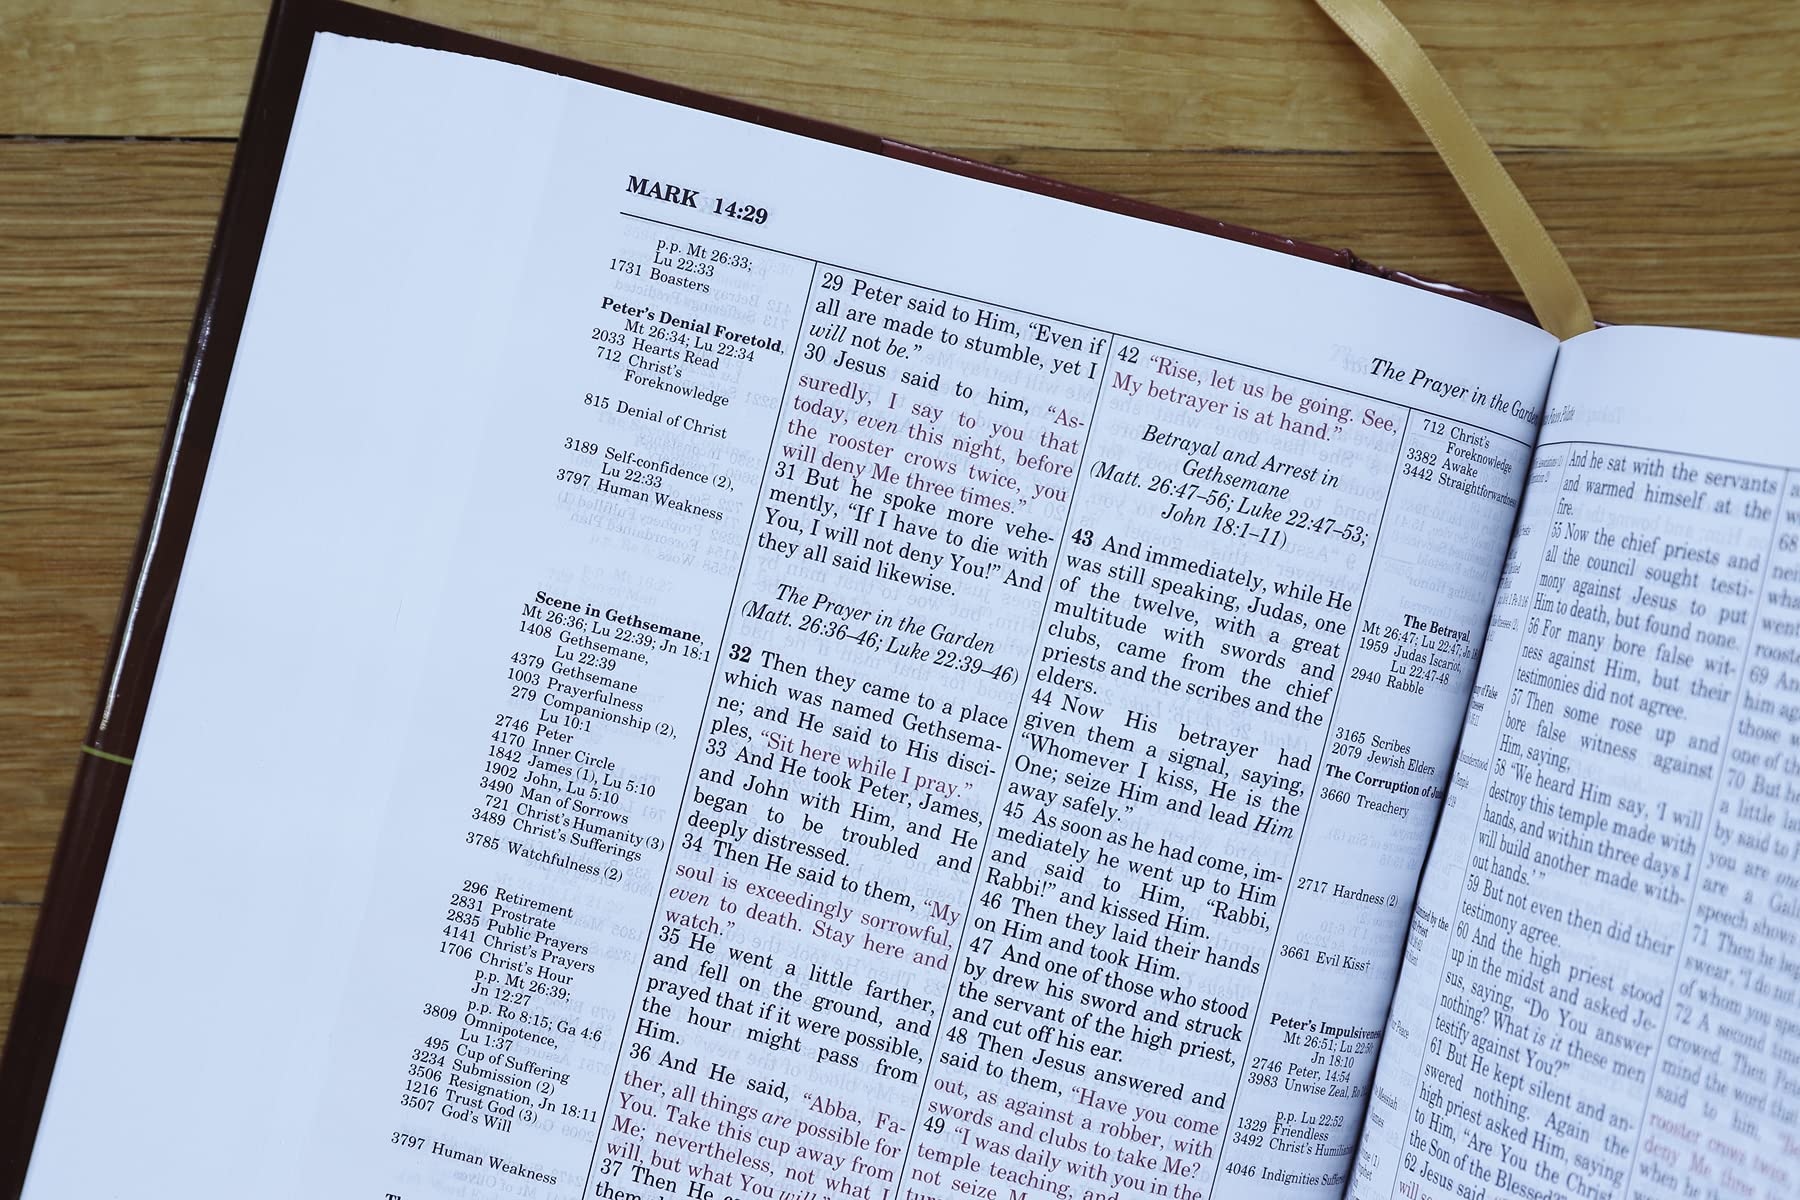 MARK 14:29
p.p. Mt 26:33;
Lu 22:33
1731 Boasters
Peter's Denial Foretold,
Mt 26:34; Lu 22:34
2033 Hearts Read
712 Christ's
Foreknowledge
815 Denial of Christ
3189 Self-confidence (2),
Lu 22:33
3797 Human Weakness
Scene in Gethsemane,
Mt 26:36; Lu 22:39; Jn 18:1
1408 Gethsemane,
Lu 22:39
4379 Gethsemane
1003 Prayerfulness
279 Companionship (2),
Lu 10:1
2746 Peter
4170 Inner Circle
1842 James (1), Lu 5:10
1902 John, Lu 5:10
3490 Man of Sorrows
721 Christ's Humanity (3)
3489 Christ's Sufferings
3785 Watchfulness (2)
296 Retirement
2831 Prostrate
2835 Public Prayers
4141 Christ's Prayers
1706 Christ's Hour
p.p. Mt 26:39;
Jn 12:27
p.p. Ro 8:15; Ga 4:6
3809 Omnipotence,
Lu 1:37
495 Cup of Suffering
3234 Submission (2)
3506 Resignation, Jn 18:11
1216 Trust God (3)
3507 God's Will
3797 Human Weakness
29 Peter said to Him, “Even if
all are made to stumble, yet I
will not be.”
30 Jesus said to him, “As-
suredly, I say to you that
today, even this night, before
the rooster crows twice, you
will deny Me three times.”
31 But he spoke more vehe-
mently, “If I have to die with
You, I will not deny You!” And
they all said likewise.
The Prayer in the Garden
(Matt. 26:36–46; Luke 22:39–46)
32 Then they came to a place
which was named Gethsema-
ne; and He said to His disci-
ples, “Sit here while I pray.”
33 And He took Peter, James,
and John with Him, and He
began to be troubled and
deeply distressed.
34 Then He said to them, “My
soul is exceedingly sorrowful,
even to death. Stay here and
watch.”
35 He went a little farther,
and fell on the ground, and
prayed that if it were possible,
the hour might pass from
Him.
36 And He said, “Abba, Fa-
ther, all things are possible for
You. Take this cup away from
Me; nevertheless, not what I
will, but what You will.”
37 Then He
The Prayer in the Garden
42 “Rise, let us be going. See,
My betrayer is at hand.”
Betrayal and Arrest in
Gethsemane
(Matt. 26:47–56; Luke 22:47–53;
John 18:1–11)
43 And immediately, while He
was still speaking, Judas, one
of the twelve, with a great
multitude with swords and
clubs, came from the chief
priests and the scribes and the
elders.
44 Now His betrayer had
given them a signal, saying,
“Whomever I kiss, He is the
One; seize Him and lead Him
away safely.”
45 As soon as he had come, im-
mediately he went up to Him
and said to Him, “Rabbi,
Rabbi!” and kissed Him.
46 Then they laid their hands
on Him and took Him.
47 And one of those who stood
by drew his sword and struck
the servant of the high priest,
and cut off his ear.
48 Then Jesus answered and
said to them, “Have you come
out, as against a robber, with
swords and clubs to take Me?
49 “I was daily with you in the
temple teaching, and
not seize
712 Christ's
Foreknowledge
3382 Awake
3442 Straightforwardness
The Betrayal,
Mt 26:47; Lu 22:47;
1959 Judas Iscariot,
Lu 22:47-48
2940 Rabble
3165 Scribes
2079 Jewish Elders
The Corruption of
3660 Treachery
2717 Hardness (2)
3661 Evil Kiss†
Peter's Impulsiveness
Mt 26:51; Lu
Jn 18:10
2746 Peter, 14:54
3983 Unwise Zeal,
p.p. Lu 22:52
1329 Friendless
3492 Christ's
4046 Indignities
And he sat with the servants
and warmed himself at the
fire.
55 Now the chief priests and
all the council sought testi-
mony against Jesus to put
Him to death, but found none.
56 For many bore false wit-
ness against Him, but their
testimonies did not agree.
57 Then some rose up and
bore false witness against
Him, saying,
58 “We heard Him say, ‘I will
destroy this temple made with
hands, and within three days I
will build another made with-
out hands.’”
59 But not even then did their
testimony agree.
60 And the high priest stood
up in the midst and asked Je-
sus, saying, “Do You answer
nothing? What is it these men
testify against You?”
61 But He kept silent and an-
swered nothing. Again the
high priest asked Him, saying
to Him, “Are You the Christ,
the Son of the Blessed?”
62 Jesus said
68
69
one of
70 But he
a little
by said to
you are one
are a
speech shows
71 Then he
swear, “I do not
of whom you
72 A second time
crowed. Then
mind the word that
said to him,
rooster crows
deny Me three